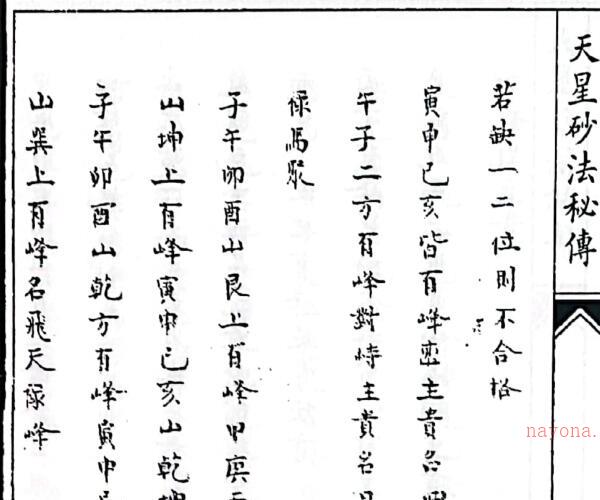 天星砂法秘傳
若缺一二位則不合格
寅申巳亥皆有峰巒主貴名
午子二方有峰對峙主貴名
祿馬聚
子午卯酉山艮上有峰甲庚
山坤上有峰寅申巳亥山乾坤
子午卯酉山乾方有峰寅申
山巽上有峰名飛天祿峰
nayona.